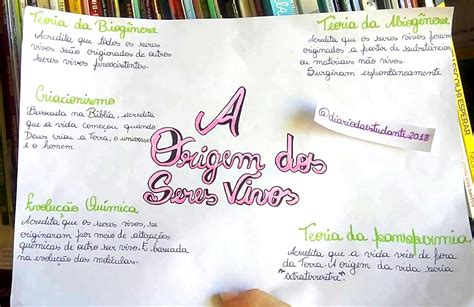 Teoria da Biogênese
Acredita que todos os seres
vivos serão originados de outros
seres vivos preexistentes.
Teoria da Abiogênese
Acredita que os seres vivos foram
originados a partir de substâncias
ou materiais não vivos.
Surgiram espontaneamente
Criacionismo
Baseada na Bíblia, acredita
que a vida começou quando
Deus criou a Terra, o universo
e o homem.
A
Origem dos
Seres Vivos
@diariodaestudante2018
Evolução Química
Acredita que os seres vivos, se
originaram por meio de alterações
químicas de outro ser vivo. É baseada
na evolução das moléculas.
Teoria da panspermia
Acredita que a vida veio de fora
da Terra. A origem da vida seria
"extraterrestre".
ESCOLHI ESPERAR